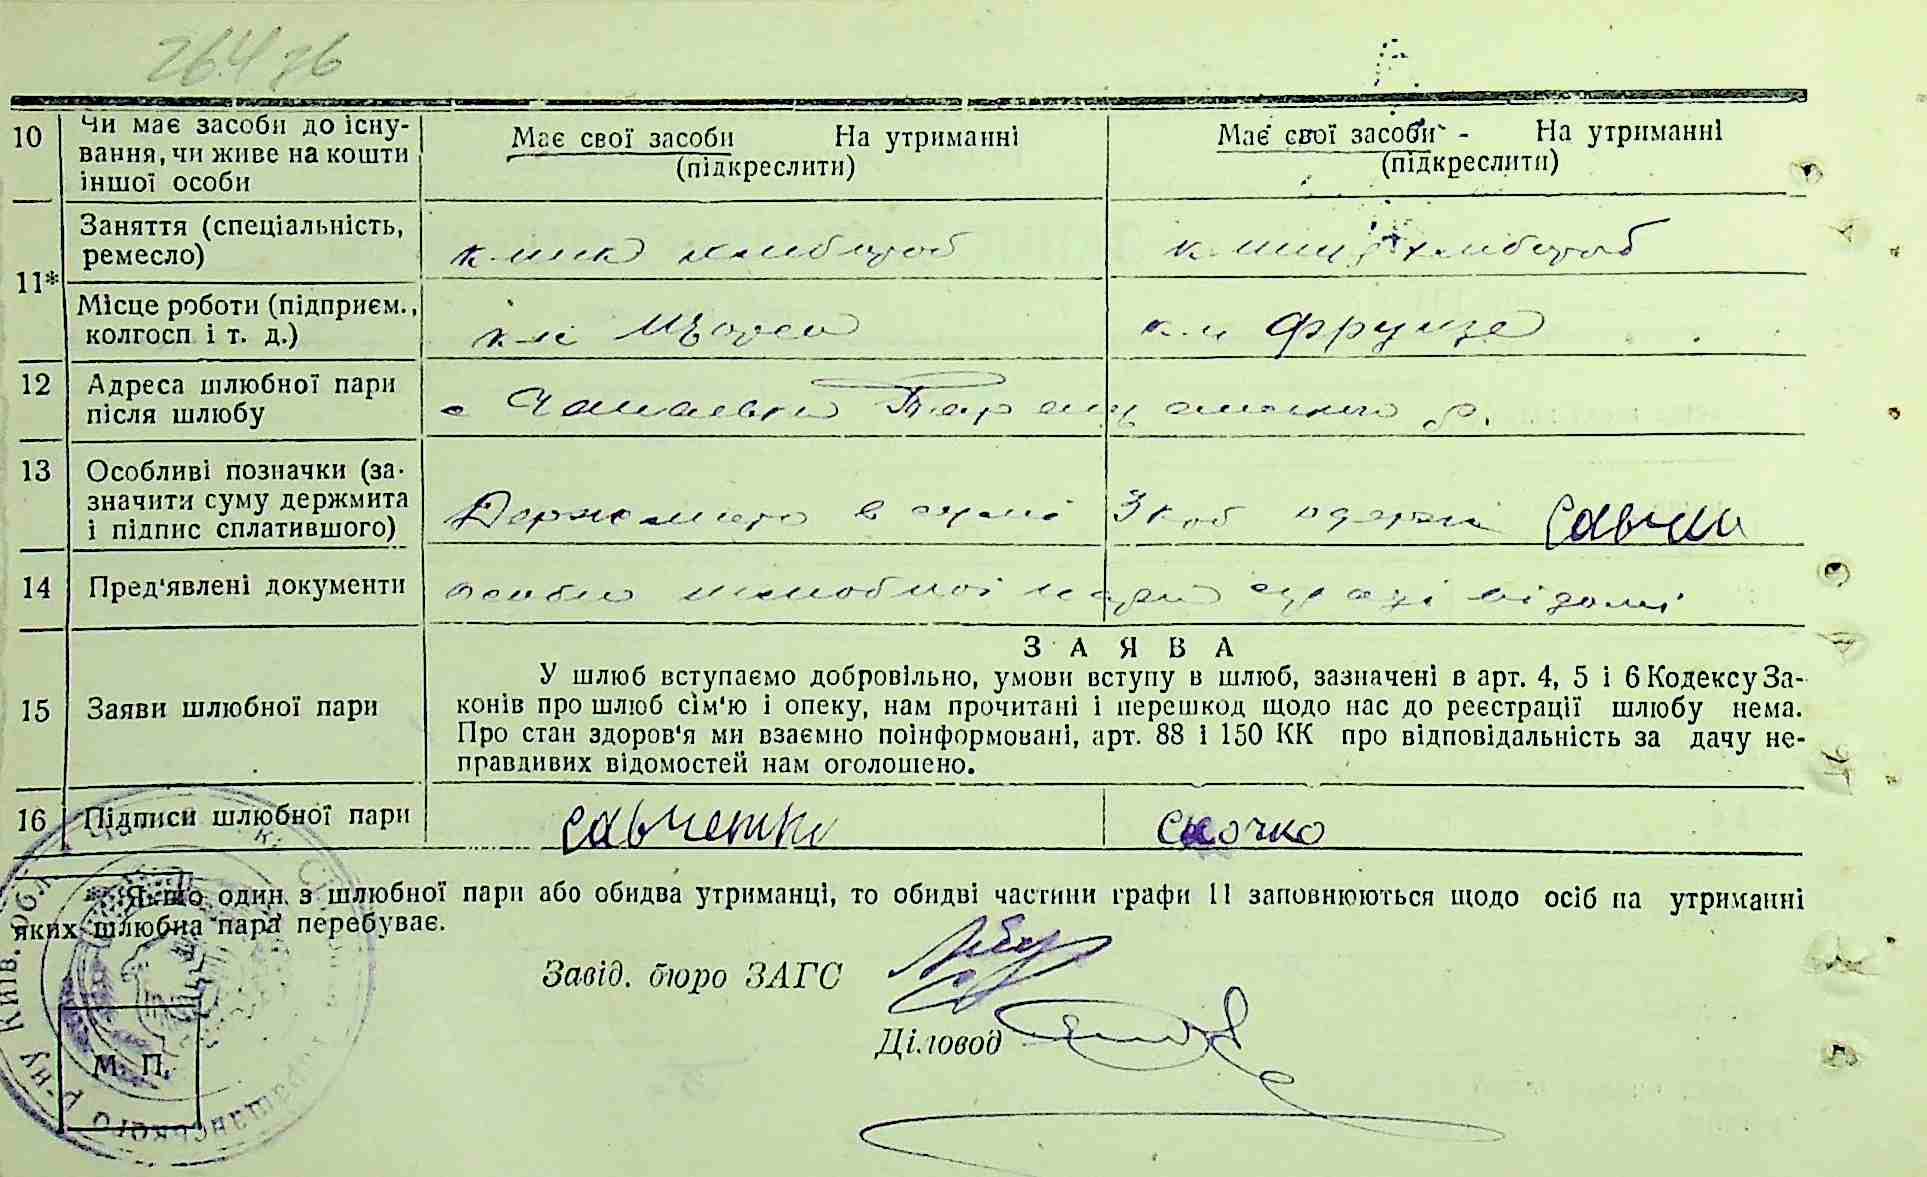 26.4 76
10 Чи має засоби до існу-
вання, чи живе на кошти
іншої особи
Має свої засоби На утриманні
(підкреслити)
Має свої засоби - На утриманні
(підкреслити)
11*
Заняття (спеціальність,
ремесло)
хлібороб
хлібороб
Місце роботи (підприєм.,
колгосп і т. д.)
Щорса
Фрунзе
12 Адреса шлюбної пари
після шлюбу
с Таращанського р.
13 Особливі позначки (за-
значити суму держмита
і підпис сплатившого)
Держмито в сумі 3 коб одержі Савчен
14 Пред'явлені документи
особи шлюбної пари відомі
15 Заяви шлюбної пари
ЗАЯВА
У шлюб вступаємо добровільно, умови вступу в шлюб, зазначені в арт. 4, 5 і 6 Кодексу За-
конів про шлюб сім'ю і опеку, нам прочитані і перешкод щодо нас до реєстрації шлюбу нема.
Про стан здоров'я ми взаємно поінформовані, арт. 88 і 150 КК про відповідальність за дачу не-
правдивих відомостей нам оголошено.
16 Підписи шлюбної пари
Савченко
Скочко
* Якщо один з шлюбної пари або обидва утриманці, то обидві частини графи 11 заповнюються щодо осіб на утриманні
яких шлюбна пара перебуває.
Завід. бюро ЗАГС
Діловод
М. П.
Таращанського р-ну Київ. обл.